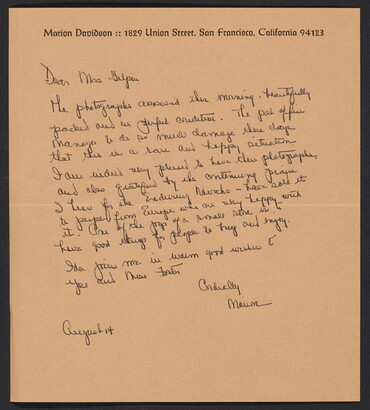 Marion Davidson :: 1829 Union Street, San Francisco, California 94123
Dear Miss Gilpin
The photographs arrived this morning, beautifully
packed and in perfect condition. The post office
manages to do so much damage these days
that this is a rare and happy situation
I am indeed very pleased to have these photographs,
and also gratified by the continuing praise
I hear for the Enduring Navaho - have sold it
to people from Europe who are very happy with
it. One of the joys of a small store is to
have good things for people to buy and enjoy.
Ida joins me in warm good wishes to
you and Miss Forster
Cordially
Marion
August 14